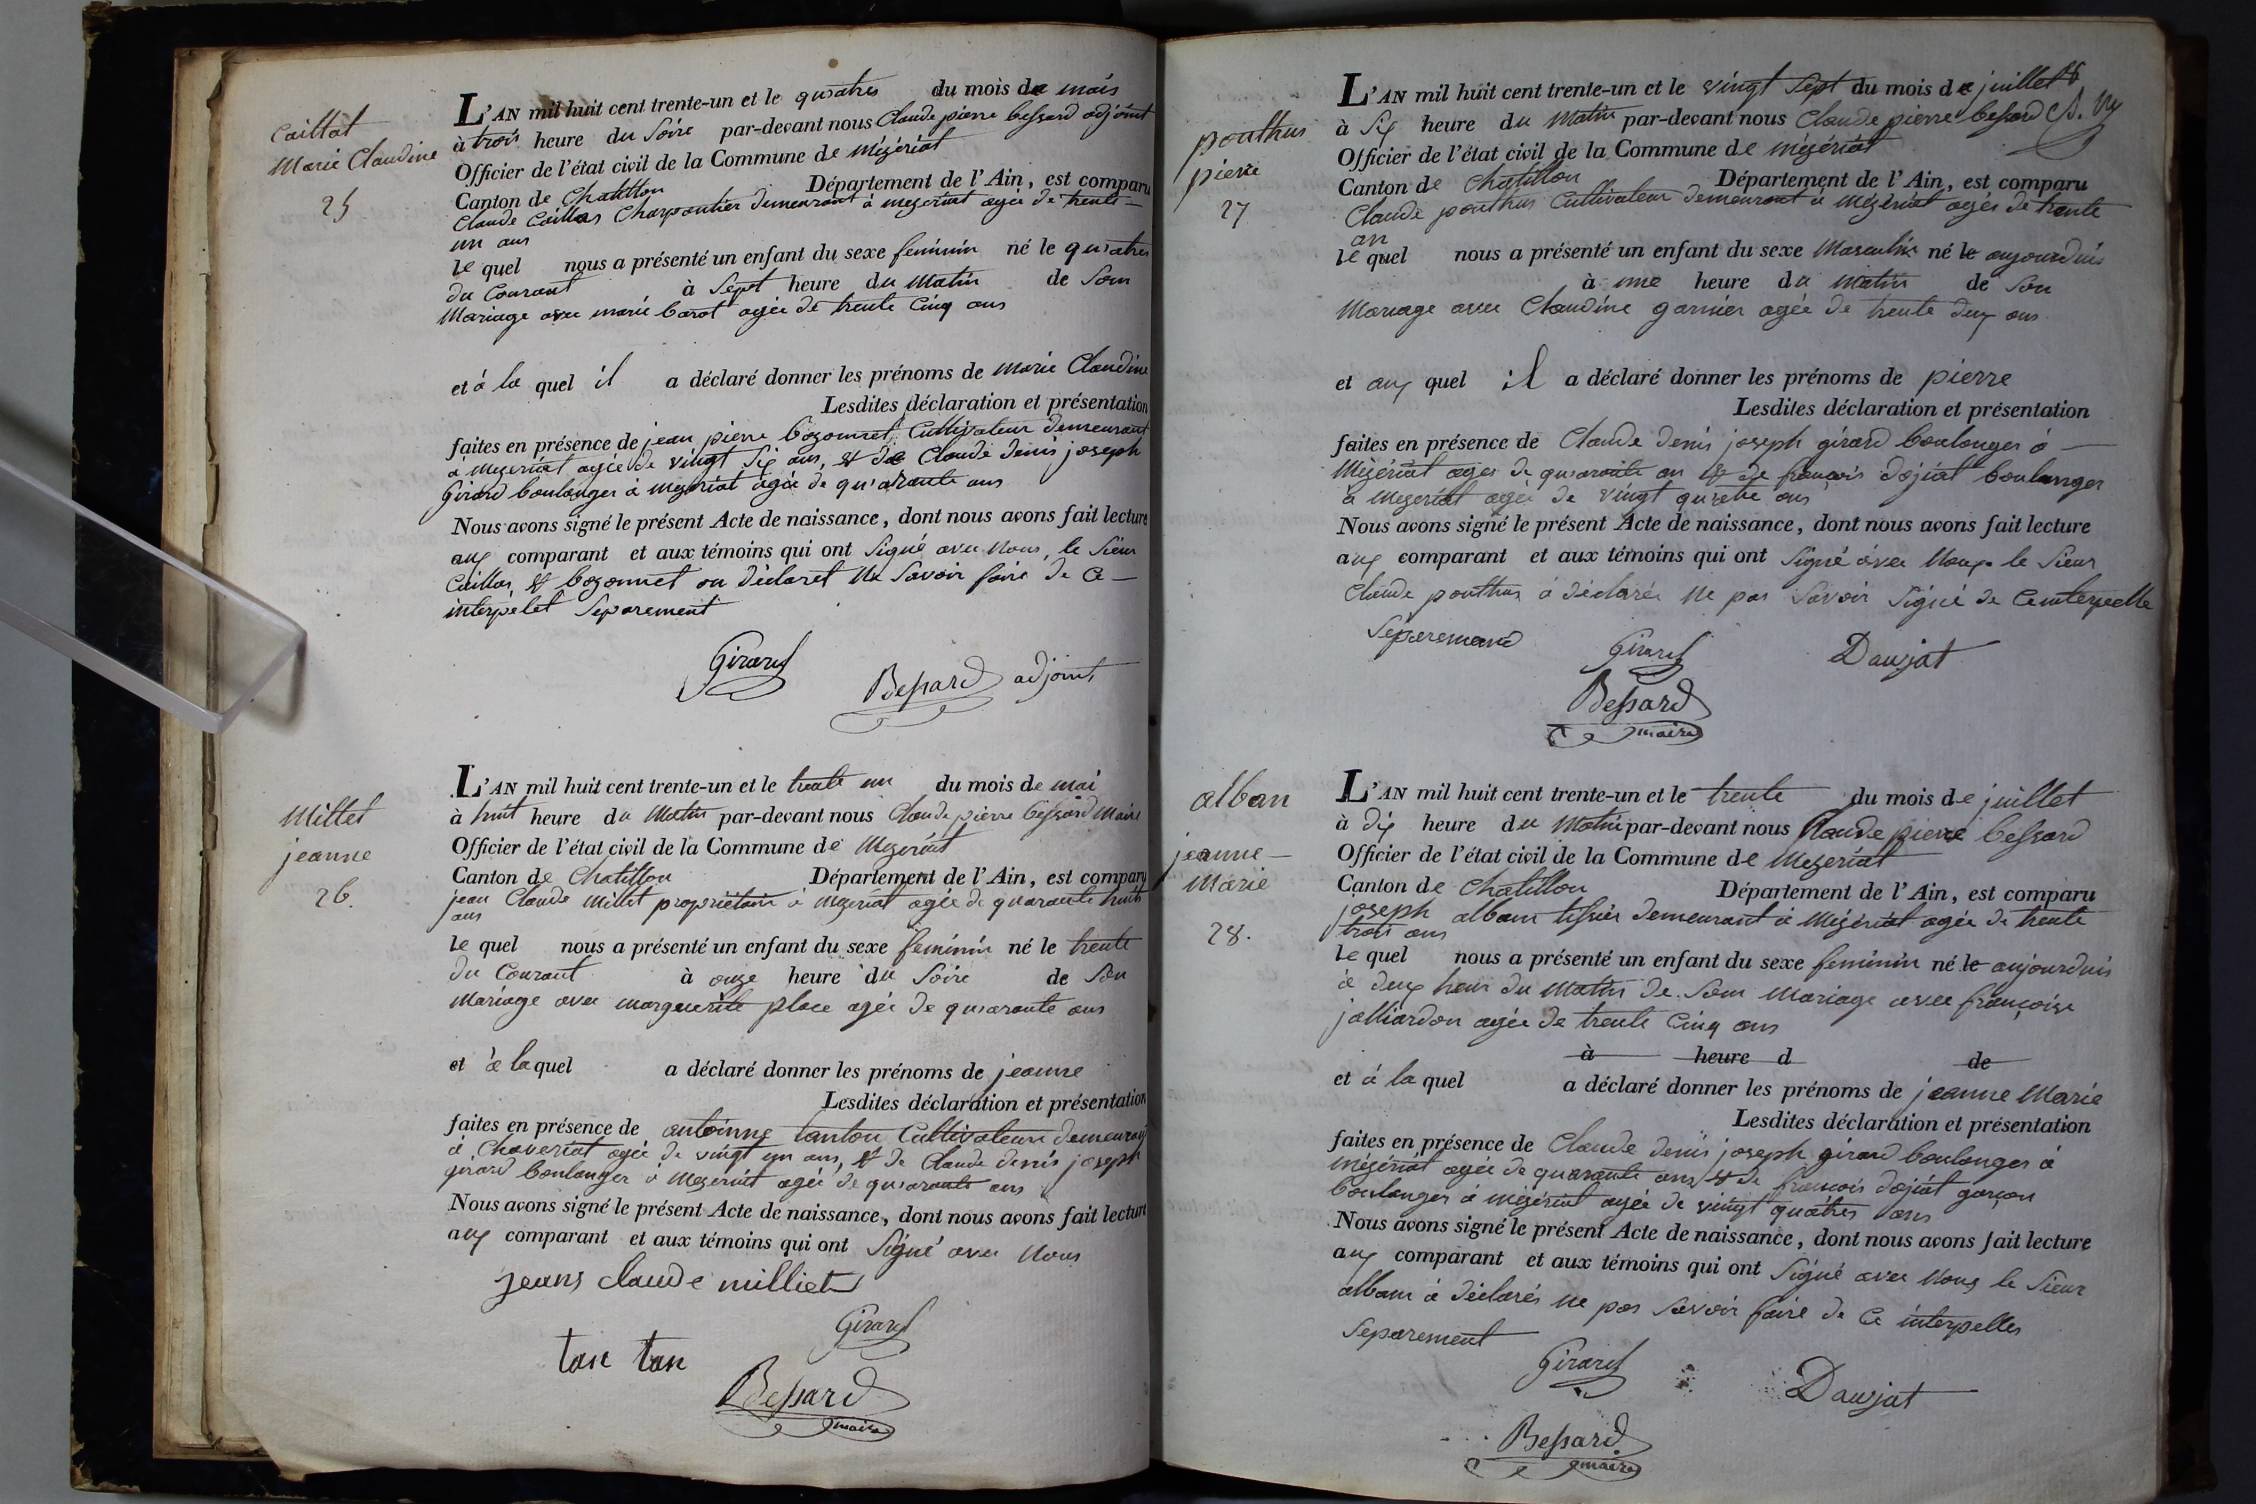 Caillat
Marie Claudine
25
L'AN mil huit cent trente-un et le quatres du mois de mais
à trois heure du Soire par-devant nous Claude pierre bessard adjoint
Officier de l'état civil de la Commune de Mézériat
Canton de Chatillon Département de l'Ain, est comparu
Claude Caillas Charpantier demeurant à mezeriat agée de trente
un ans
le quel nous a présenté un enfant du sexe feminin né le quatres
du Courant à Sept heure du Matin de Som
Mariage avec marie barot agée de trente Cinq ans
et à la quel il a déclaré donner les prénoms de Marie Claudine
Lesdites déclaration et présentation
faites en présence de jean pierre bozonnet Cultivateur demeurant
à Mezeriat agée de vingt Six ans, et de Claude denis joseph
Girard boulanger à Mezeriat agée de quarante ans
Nous avons signé le présent Acte de naissance, dont nous avons fait lecture
aux comparant et aux témoins qui ont Signé avec Nous, le Sieur
Caillas et bozonnet on déclaret Ne Savoir faire de Ce
interpelet Separement
Girard
Bessard adjoint
Millet
jeanne
26.
L'AN mil huit cent trente-un et le trente un du mois de mai
à huit heure du Matin par-devant nous Claude pierre bessard Maire
Officier de l'état civil de la Commune de Mezeriat
Canton de Chatillon Département de l'Ain, est comparu
jean Claude Millet propriétaire à Mezeriat agée de quarante huit
ans
le quel nous a présenté un enfant du sexe feminin né le trente
du Courant à onze heure du Soire de Son
Mariage avec marguerite place agée de quarante ans
et à la quel a déclaré donner les prénoms de jeanne
Lesdites déclaration et présentation
faites en présence de antoinne tanton Cultivateur demeurant
à Chaveriat agée de vingt un ans, et de Claude denis joseph
girard boulanger à Mezeriat agée de quarante ans
Nous avons signé le présent Acte de naissance, dont nous avons fait lecture
aux comparant et aux témoins qui ont Signé avec Nous
jeans claude milliet
Girard
tan tan
Bessard
maire
ponthus
pierre
27
L'AN mil huit cent trente-un et le vingt Sept du mois de juillet
à Six heure du Matin par-devant nous Claude pierre bessard
Officier de l'état civil de la Commune de Mézériat
Canton de Chatillon Département de l'Ain, est comparu
Claude ponthus Cultivateur demeurant à Mézériat agés de trente
an
le quel nous a présenté un enfant du sexe Masculin né le aujourduis
à une heure du Matin de Son
Mariage avec Claudine garnier agée de trente deux ans
et aux quel il a déclaré donner les prénoms de pierre
Lesdites déclaration et présentation
faites en présence de Claude denis joseph girard boulanger à
Mézériat agés de quarante an et de francois dojat boulanger
à Mezeriat agée de vingt quatre ans
Nous avons signé le présent Acte de naissance, dont nous avons fait lecture
aux comparant et aux témoins qui ont Signé avec Nous le Sieur
Claude ponthus à déclarés Ne pas Savoir Signé de Ceinterpelle
Separemend
Girard
Daujat
Bessard
maire
alban
jeanne
Marie
28.
L'AN mil huit cent trente-un et le trente du mois de juillet
à dix heure du Matin par-devant nous Claude pierre bessard
Officier de l'état civil de la Commune de Mezeriat
Canton de Chatillon Département de l'Ain, est comparu
joseph albam tissier demeurant à Mézériat agée de trente
trois ans
Le quel nous a présenté un enfant du sexe feminin né le aujourduis
à deux heur du Matin de Som Mariage avec françoise
jalliardon agée de trente Cinq ans
à heure d de
et à la quel a déclaré donner les prénoms de jeanne Marie
Lesdites déclaration et présentation
faites en présence de Claude denis joseph girard boulanger à
Mézériat agée de quarante ans et de francois dojat garçon
boulanger à Mézériat agée de vingt quatres ans
Nous avons signé le présent Acte de naissance, dont nous avons fait lecture
aux comparant et aux témoins qui ont Signé avec Nous le Sieur
albam à déclarés ne pas Savoir faire de Ce interpelles
Separement
Girard
Daujat
Bessard
maire